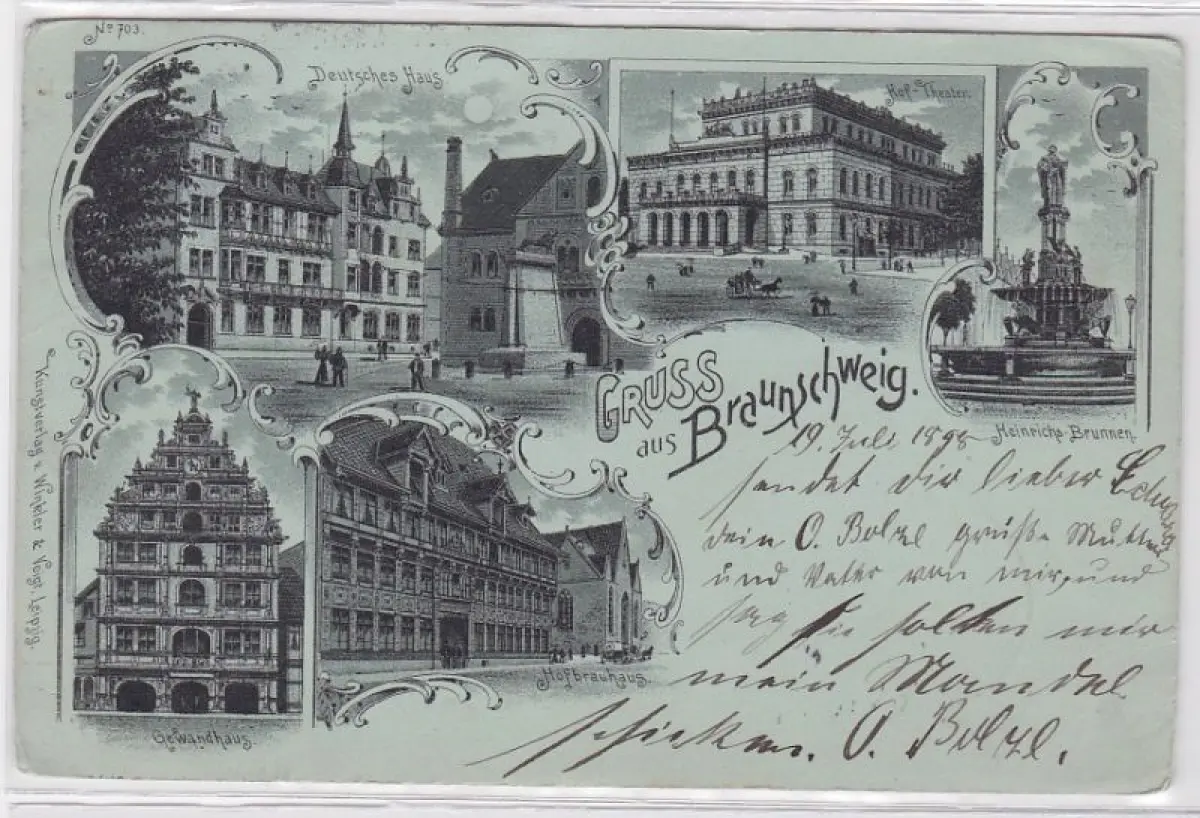 No 703.
Deutsches Haus
Hof-Theater.
Heinrichs-Brunnen.
GRUSS
aus Braunschweig.
Gewandhaus.
Hofbräuhaus.
Kunstverlag v. Winkler & Voigt, Leipzig.
19. Juli 1898
sendet dir lieber
dein O. Bolzl grüße Mutter
und Vater von mir, und
sag sie sollen mir
mein Mandel
schicken. O. Bolzl.